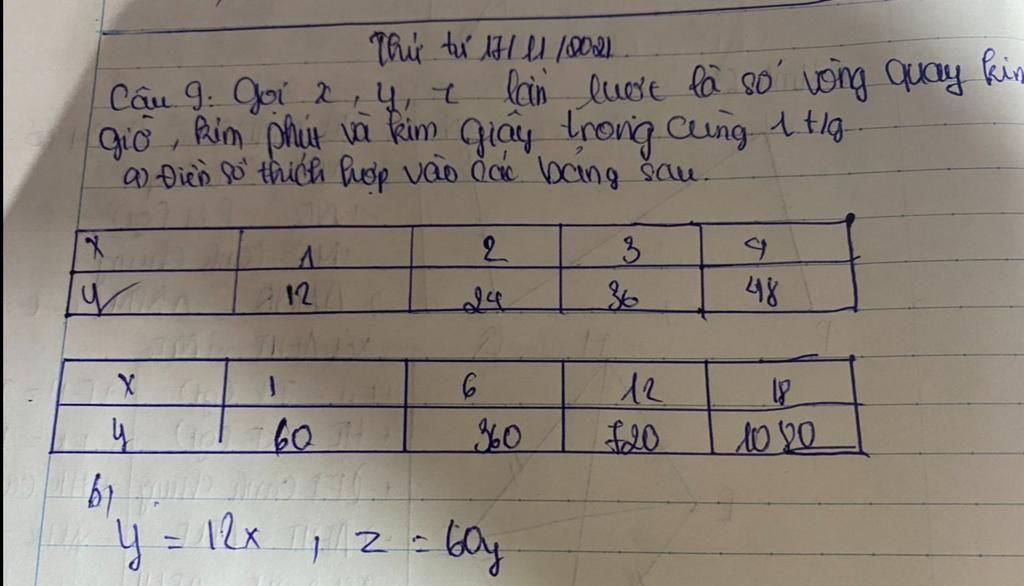 Thứ tư 17/11/2021
Câu 9: Gọi x, y, z lần lượt là số vòng quay kim
giờ, kim phút và kim giây trong cùng 1 t/g
a) Điền số thích hợp vào các bảng sau.
x 1 2 3 4
y 12 24 36 48
x 1 6 12 18
y 60 360 720 1080
b)
y = 12x , z = 60y